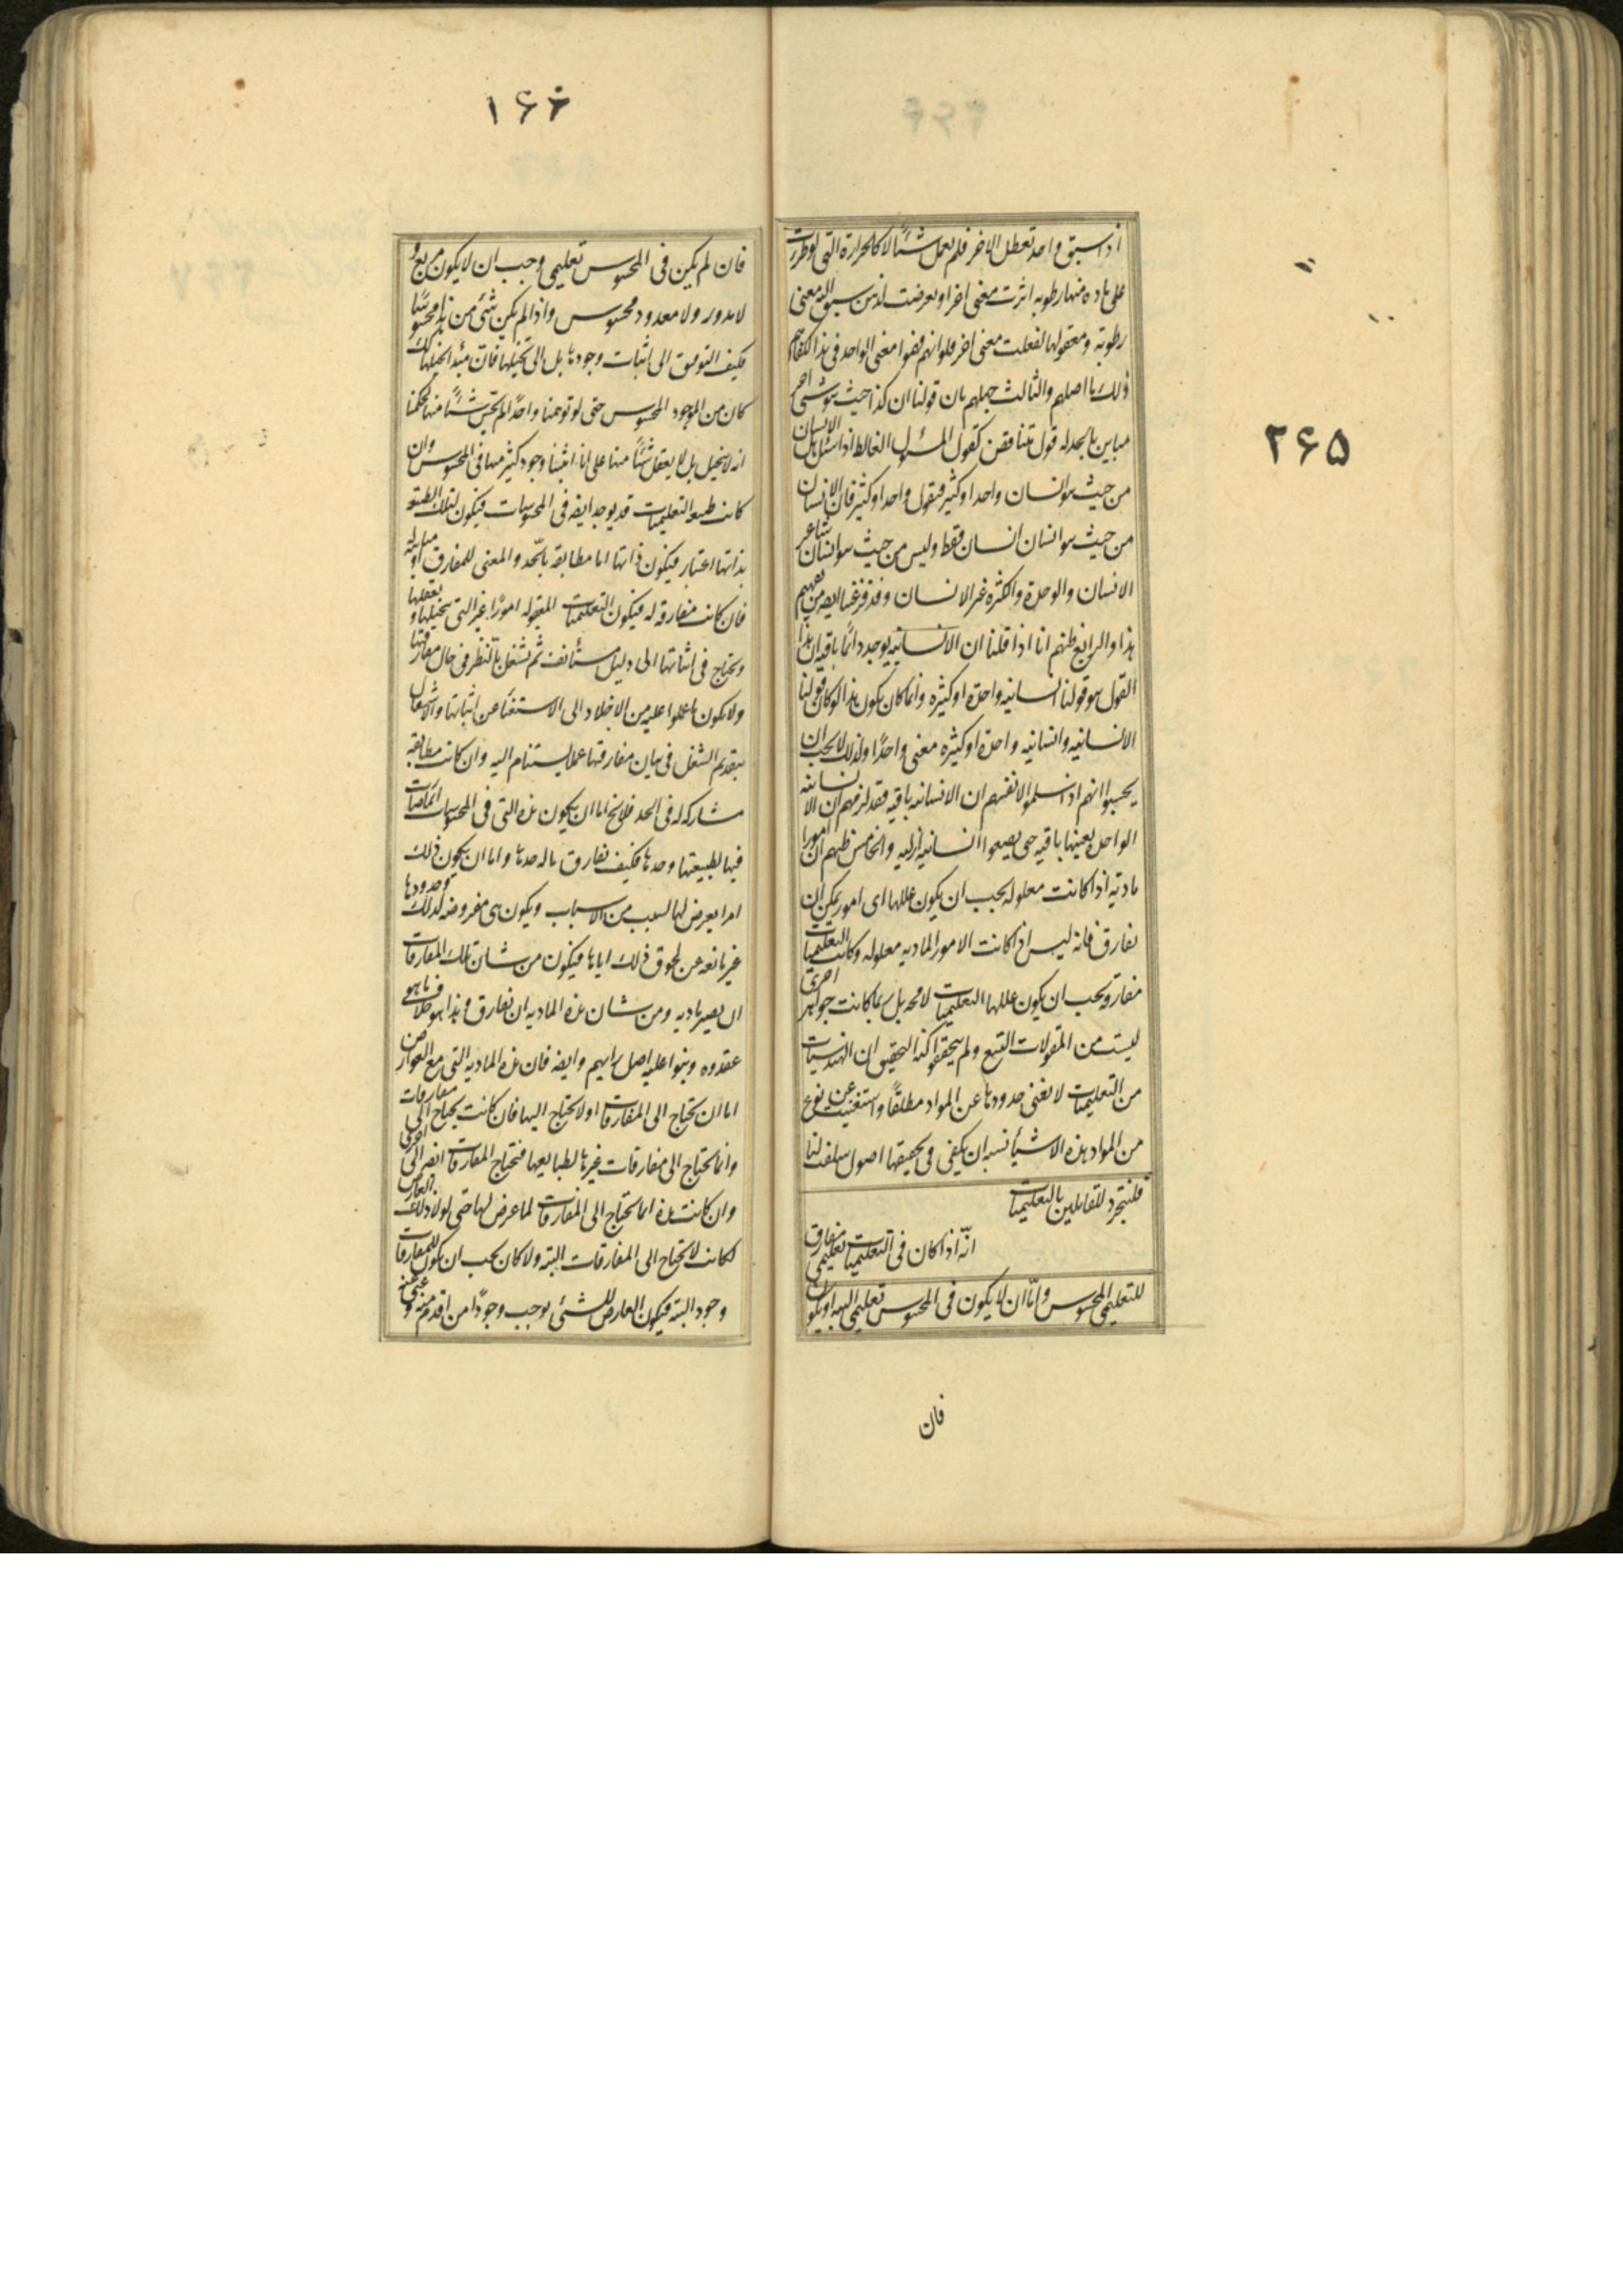 ۲۶۵
اذا سبق واحد تعطل الاخر فلم يعمل شئًا لا كالحرارة التى لو طرت
على ماده منها رطوبه اثرت معنى اخر او تعرضت لذهن سبق اليه معنى
رطوبته ومعقولها لفعلت معنى اخر فلو انهم فهموا معنى الواحد فى هذا لكفاهم
ذلك ما اضلهم والثالث جهلهم بان قولنا ان كذا حيث هو شئ اخر
مباين بالحد له قول متناقض كقول المسئول الغالط اذا سئل هل الانسان
من حيث هو انسان واحد او كثير فيقول واحد او كثير فان الانسان
من حيث هو انسان انسان فقط وليس من حيث هو انسان شئ غير
الانسان والوحدة والكثره غير الانسان وقد فرغنا ايضه من تفهيم
هذا والرابع ظنهم انا اذا قلنا ان الانسانيه يوجد دائمًا باقيه ان هذا
القول هو قولنا انسانيه واحدة او كثيره وانما كان يكون هذا لو كان قولنا
الانسانيه وانسانيه واحدة او كثيره معنى واحدًا ولذلك لا يجب ان
يحسبوا انهم اذا سلموا لانفسهم ان الانسانيه باقيه فقد لزمهم ان الانسانيه
الواحدة بعينها باقيه حتى يضعوا انسانيه ازليه والخامس ظنهم ان امورا
ماديه اذا كانت معلوله يجب ان يكون عللها اى امور يمكن ان
تفارق فانه ليس اذا كانت الامور الماديه معلوله وكانت التعليميات
مفارقه يجب ان يكون عللها التعليميات لا محه بل ربما كانت جواهر اخرى
ليست من المقولات التسع ولم يتحققوا كنه التحقيق ان الهندسيات
من التعليميات لا تغنى حدودها عن المواد مطلقًا واستغنيت عن نوع
من المواد هذه الاشيأ نسبه ان يكفى فى تحقيقها اصول سلفت لنا
فلنتجرد للقائلين بالتعليميات
انّه اذا كان فى التعليميات تعليمى مفارق
للتعليمى المحسوس وامّا ان لا يكون فى المحسوس تعليمى البه او يكون
فان
۱۶۶
فان لم يكن فى المحسوس تعليمى وجب ان لا يكون مربع و
لا مدور ولا معدود محسوس واذا لم يكن شئ من هذا محسوسًا
فكيف التوصق الى اثبات وجودها بل الى تخيلها فان مبدأ تخيلها كك
كان من الموجود المحسوس حتى لو توهمنا واحدًا لم يحس شئًا منها لحكمنا
انه لا يتخيل بل لا يعقل شئًا منها على انا اثبتنا وجود كثير منها فى المحسوس وان
كانت طبيعه التعليميات قد يوجد ايضه فى المحسوسات فيكون لتلك الطبيعه
بذاتها اعتبار فيكون ذاتها اما مطابقه بالحد والمعنى للمفارق او مباينه له
فان كانت مفارقه له فيكون التعليميات المعقوله امورًا غير التى نتخيلها و نعقلها
ونحتاج فى اثباتها الى دليل مستأنف ثم نشتغل بالنظر فى حال مفارقتها
ولا يكون ما عملوا عليه من الاخلاد الى الاستغنأ عن اثباتها والاشتغال
بتقديم الشغل فى بيان مفارقتها عملا يستنام اليه وان كانت مطابقه
مشاركه له فى الحد فلا يخ اما ان يكون هذه التى فى المحسوسات انما صارت
فيها لطبيعتها وحدها فكيف تفارق ما له حدها واما ان يكون ذلك
امرا يعرض لها لسبب من الاسباب ويكون هى معروضه لذلك وحدودها
غير مانعه عن لحوق ذلك اياها فيكون من شان تلك المفارقات
ان يصير ماديه ومن شان هذه الماديه ان تفارق وهذا هو خلاف ما هو
عقدوه وبنوا عليه اصل رايهم وايضه فان هذه الماديه التى مع العوارض
اما ان تحتاج الى المفارقات او لا تحتاج اليها فان كانت يحتاج الى مفارقات
وانما تحتاج الى مفارقات غيرها لطبايعها فتحتاج المفارقات ايضه الى اخرى
وان كانت هذه انما تحتاج الى المفارقات لما عرض لها حتى لولا ذلك العارض
لكانت لا تحتاج الى المفارقات البته ولا كان يجب ان يكون للمفارقات
وجود البته فيكون العارض للشئ يوجب وجودًا من اقدم منه و غنى عنه